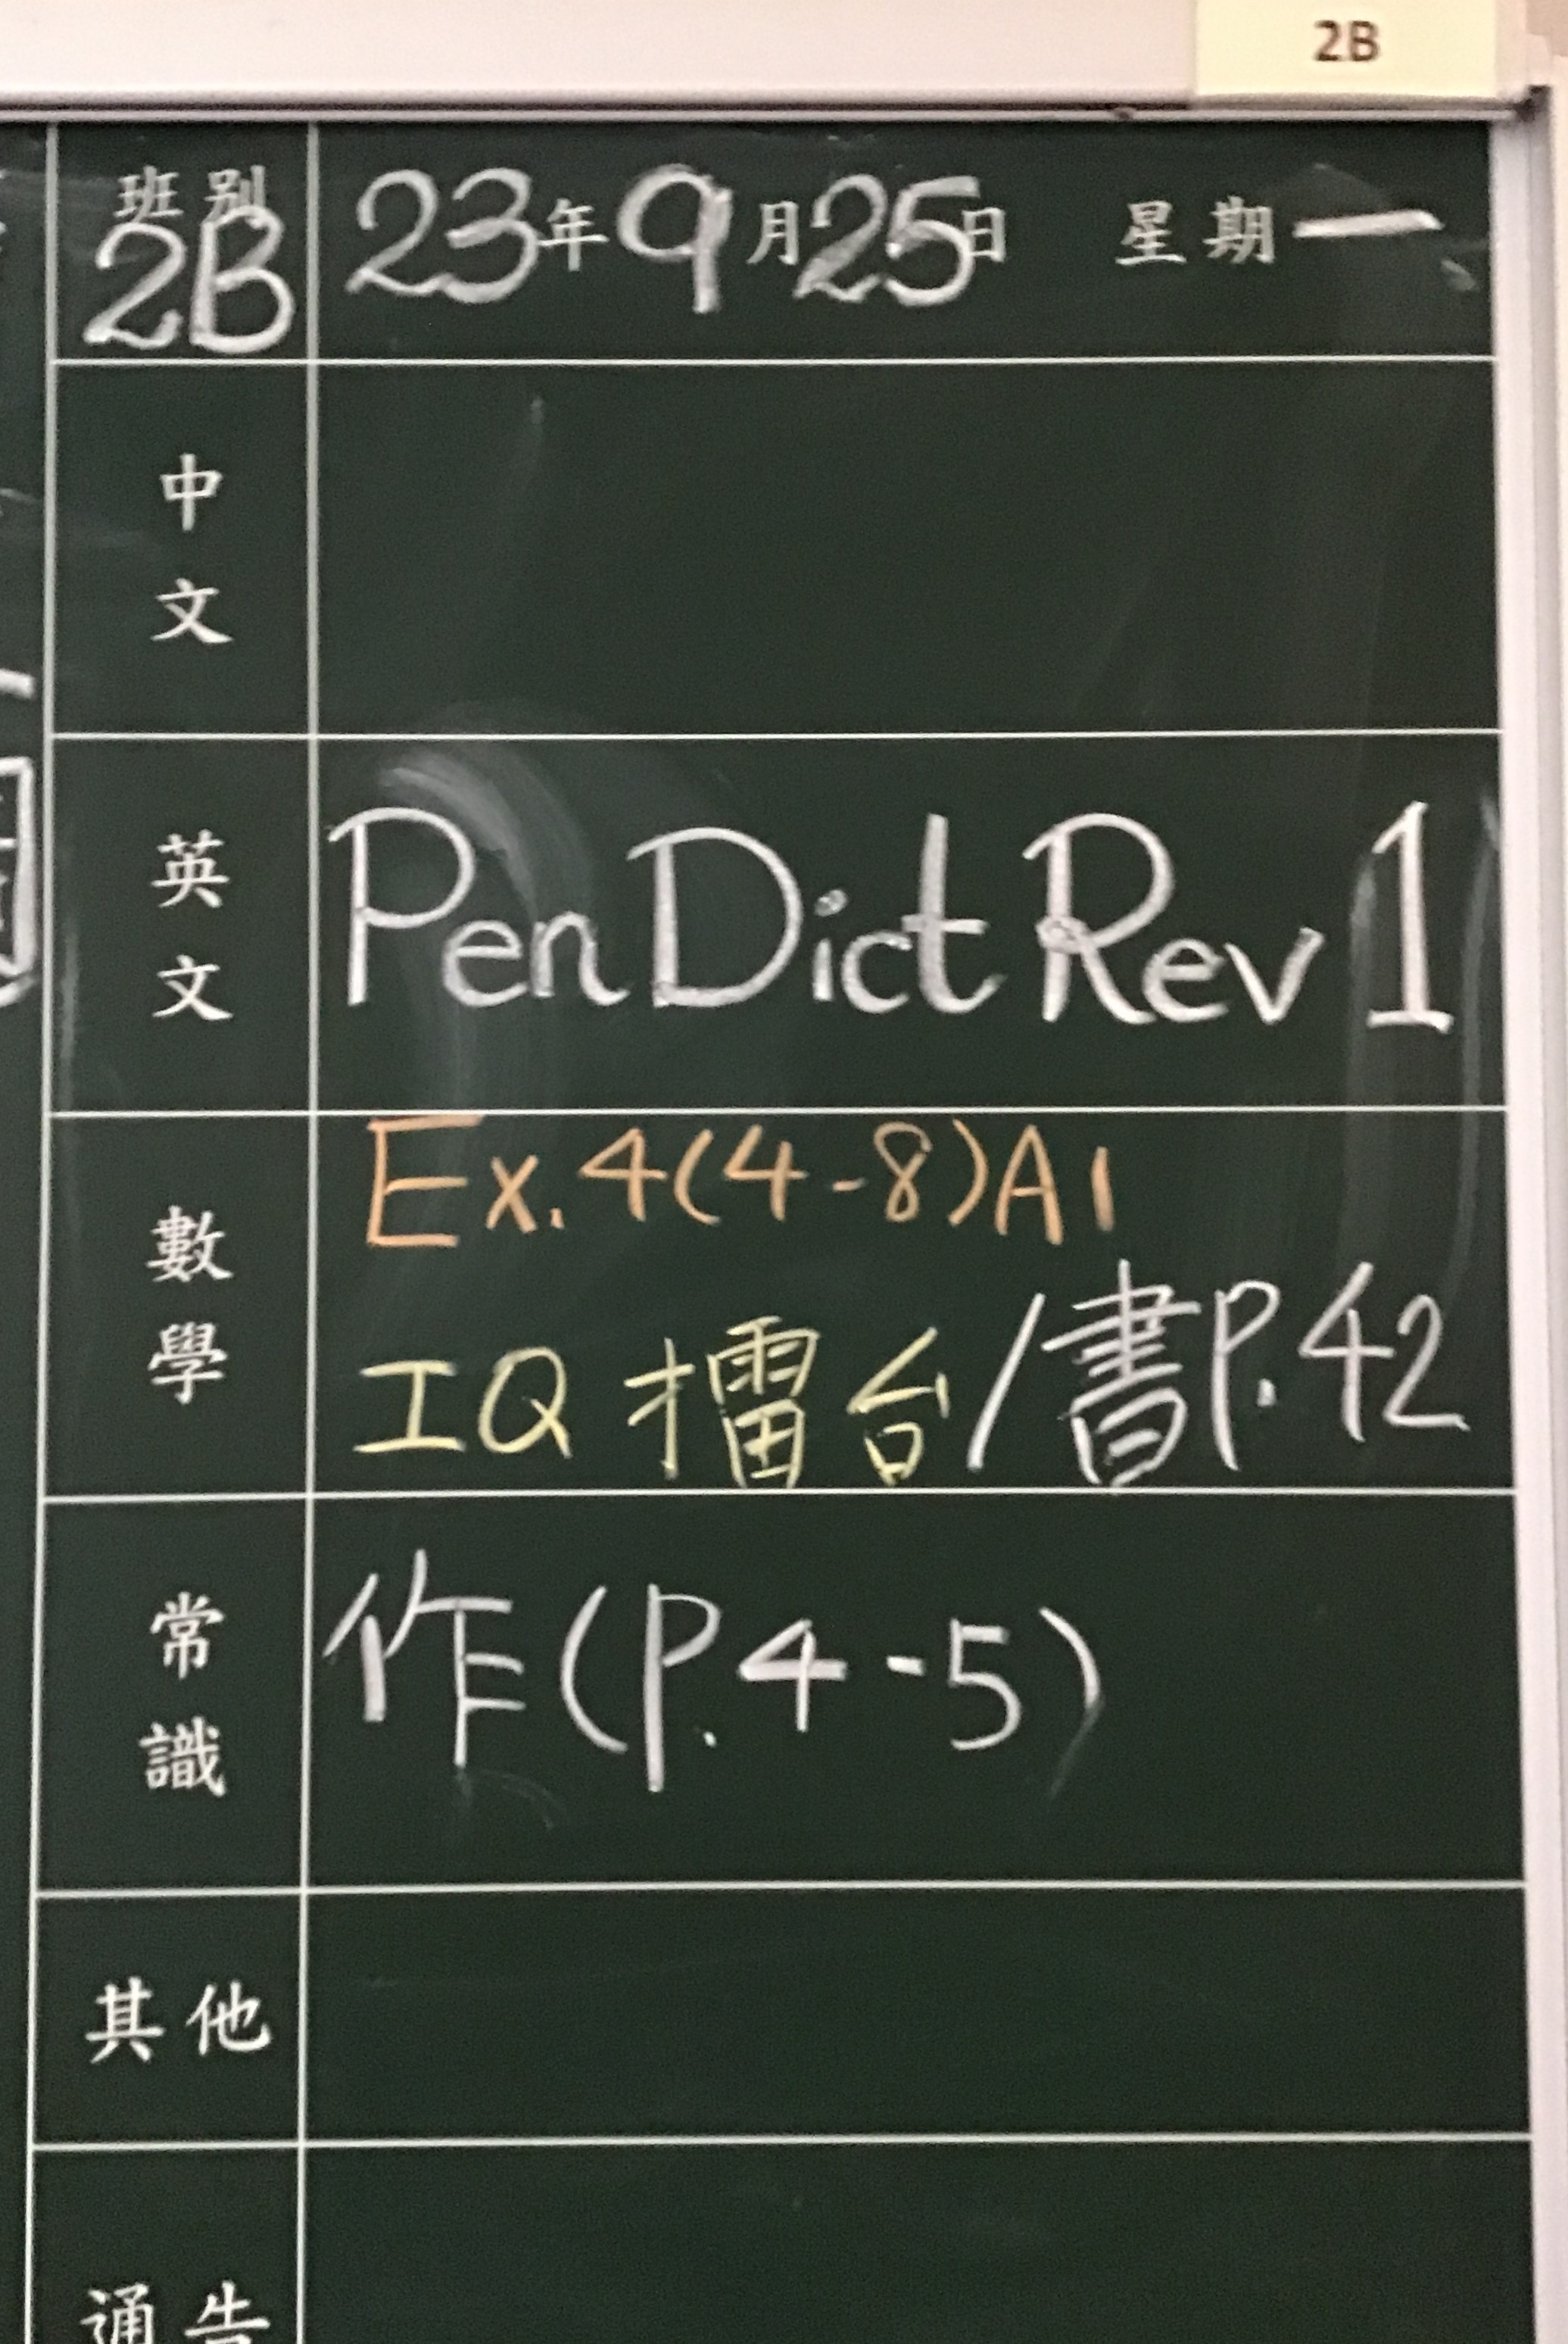 2B
班別 2B 23年9月25日 星期一
中文
英文 Pen Dict Rev 1
數學 Ex. 4(4-8)A1
IQ 擂台/書P.42
常識 作(P.4-5)
其他
通告